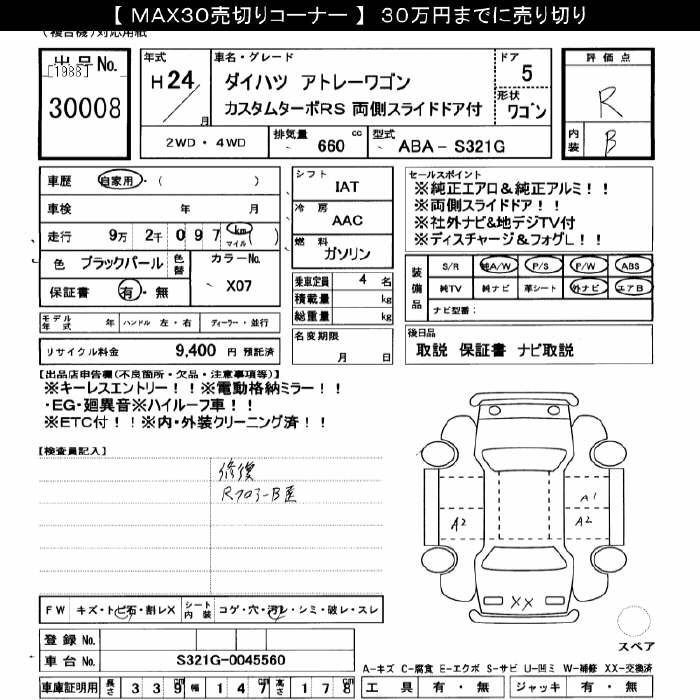 【 MAX30売切りコーナー 】 30万円までに売り切り
(複合機)対応用紙
出品No. [1988] 30008
年式 H24 / 月
車名・グレード ダイハツ アトレーワゴン
カスタムターボRS 両側スライドドア付
ドア 5
形状 ワゴン
評価点 R
内装 B
2WD ・ 4WD 排気量 660 cc 型式 ABA - S321G
車歴 自家用・( )
車検 年 月
走行 9万 2千 0 9 7 km マイル ( )
色 ブラックパール 色替 カラーNo. X07
保証書 有・無
シフト IAT
冷房 AAC
燃料 ガソリン
乗車定員 4 名
積載量 kg
総重量 kg
セールスポイント
※純正エアロ&純正アルミ!!
※両側スライドドア!!
※社外ナビ&地デジTV付
※ディスチャージ&フォグL!!
装備品 S/R 純A/W P/S P/W ABS
純TV 純ナビ 革シート 外ナビ エアB
ナビ型番:
モデル年式 年 ハンドル 左・右 ディーラー・並行
名変期限 月 日
後日品 取説 保証書 ナビ取説
リサイクル料金 9,400 円 預託済
【出品店申告欄(不良箇所・欠品・注意事項等)】
※キーレスエントリー!!※電動格納ミラー!!
・EG・廻異音※ハイルーフ車!!
※ETC付!!※内・外装クリーニング済!!
【検査員記入】
修復
Rフロアー B歪
A1
A2 A2
XX
スペア
FW キズ・トビ石・割レX シート内装 コゲ・穴・汚レ・シミ・破レ・スレ
登録 No.
車台 No. S321G-0045560
A-キズ C-腐食 E-エクボ S-サビ U-凹ミ W-補修 XX-交換済
車庫証明用 長さ 3 3 9 cm 幅 1 4 7 cm 高さ 1 7 8 cm 工具 有・無 ジャッキ 有・無